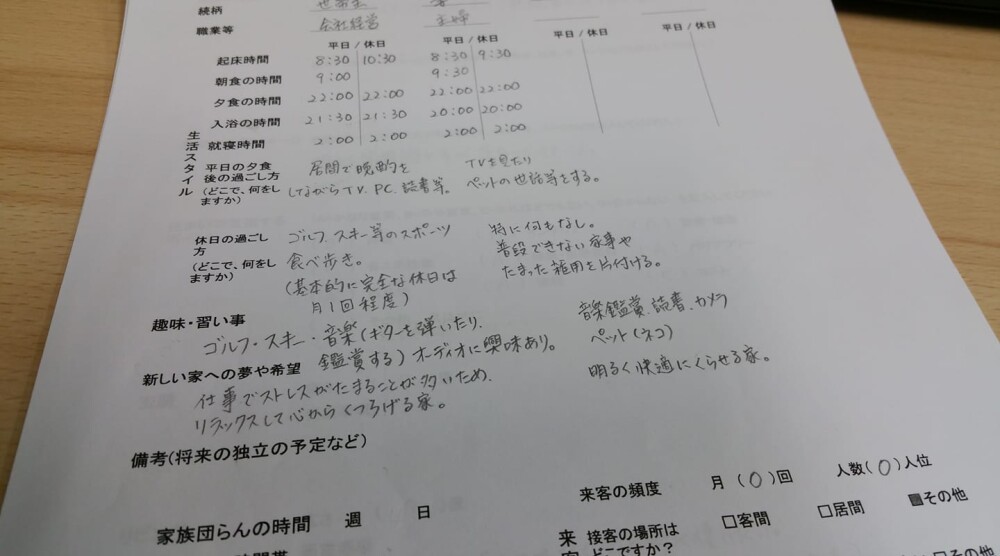 続柄 世帯主 妻
職業等 会社経営 主婦
平日/休日 平日/休日 平日/休日 平日/休日
起床時間 8:30 10:30 8:30 9:30
朝食の時間 9:00 9:30
夕食の時間 22:00 22:00 22:00 22:00
入浴の時間 21:30 21:30 20:00 20:00
就寝時間 2:00 2:00 2:00 2:00
生活スタイル
平日の夕食 居間で晩酌を TVを見たり
後の過ごし方 しながらTV.PC.読書等。 ペットの世話等をする。
(どこで、何をし
ますか)
休日の過ごし ゴルフ.スキー等のスポーツ 特に何もなし。
方 食べ歩き。 普段できない家事や
(どこで、何をし (基本的に完全な休日は たまった雑用を片付ける。
ますか) 月1回程度)
趣味・習い事
ゴルフ・スキー・音楽(ギターを弾いたり. 音楽鑑賞.読書.カメラ
鑑賞する)オーディオに興味あり。 ペット(ネコ)
新しい家への夢や希望
仕事でストレスがたまることが多いため. 明るく快適にくらせる家。
リラックスして心からくつろげる家。
備考(将来の独立の予定など)
来客の頻度 月(0)回 人数(0)人位
家族団らんの時間 週 日
接客の場所は □客間 □居間 ■その他
どこですか?
□その他